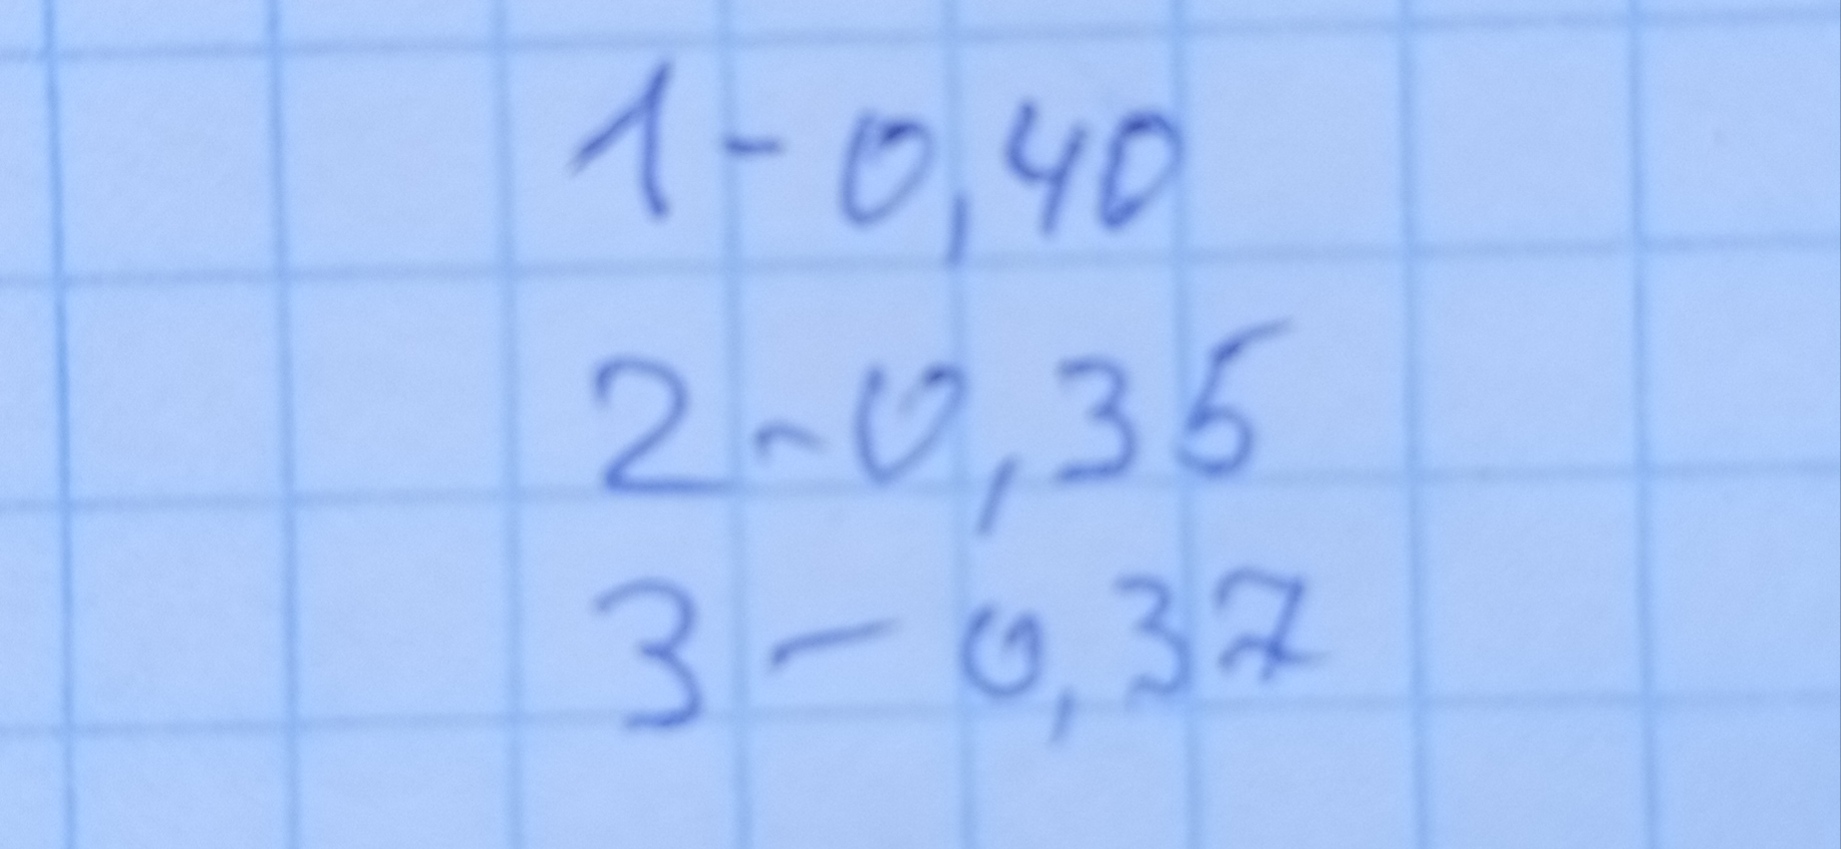 1 - 0,40
2 - 0,35
3 - 0,37